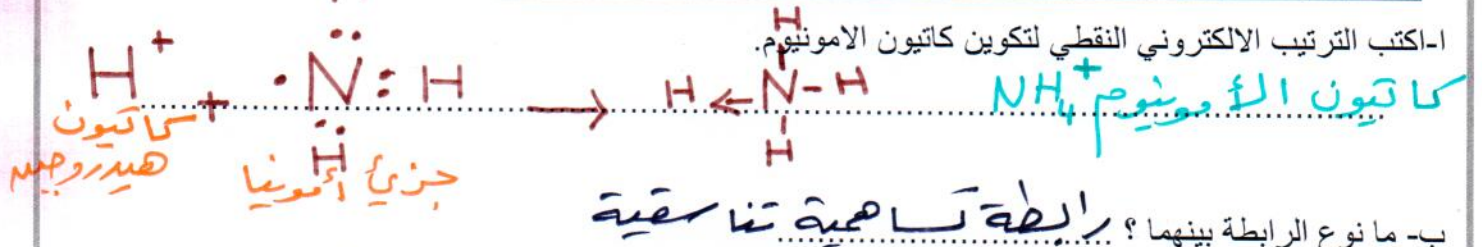 ا-اكتب الترتيب الالكتروني النقطي لتكوين كاتيون الامونيوم.
H
H⁺ + ·N: H → H ← N - H كاتيون الأمونيوم NH₄⁺
H H
كاتيون هيدروجين جزيئ أمونيا
ب- ما نوع الرابطة بينهما ؟ رابطة تساهمية تناسقية